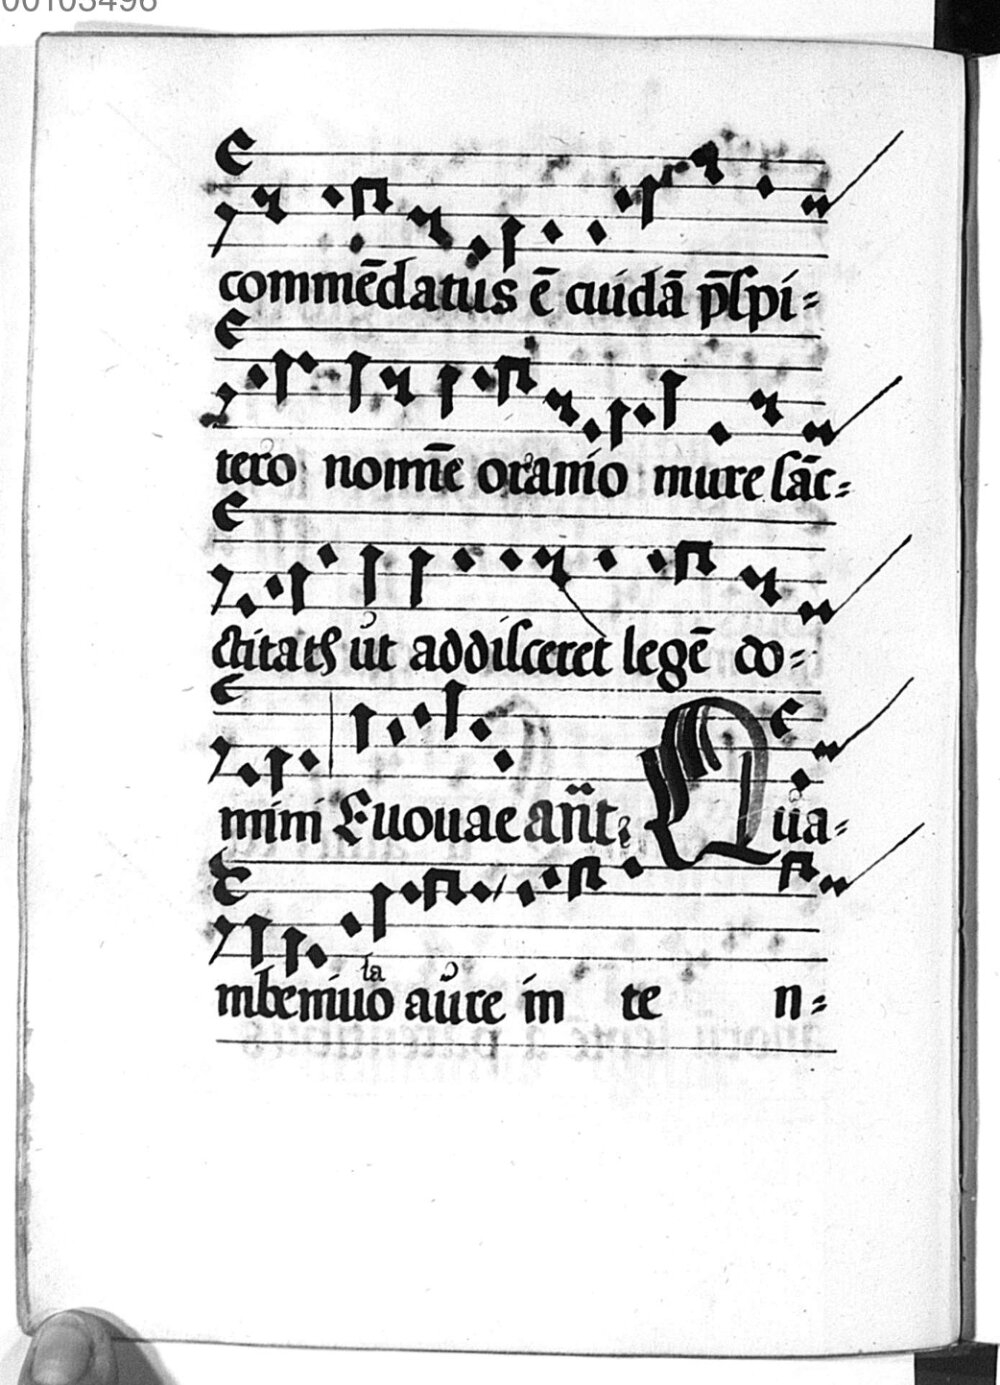 00103496
commēdatus ē cuidā p̄spi=
tero nomīe oranio mure sāc=
ctitatis ut addisceret legē do=
mini Euouae an̈t: Qua=
m beniuo la aure in te n=